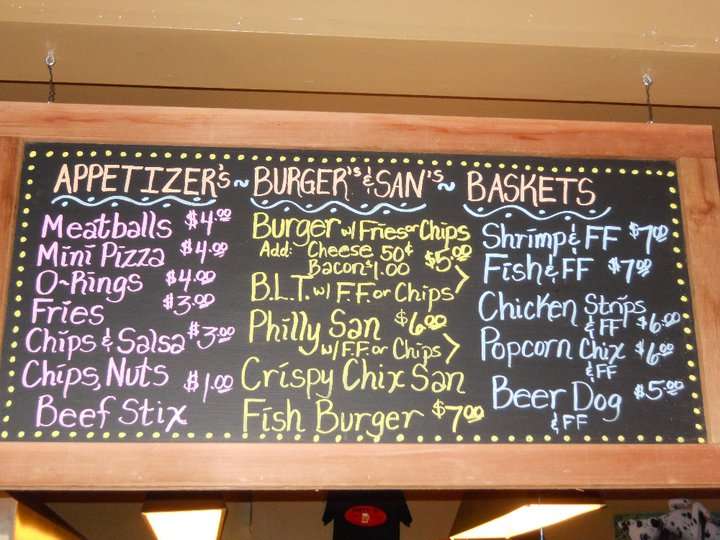 APPETIZER'S ~ BURGER'S & SAN'S ~ BASKETS
Meatballs $4.00
Mini Pizza $4.00
O-Rings $4.00
Fries $3.00
Chips & Salsa $3.00
Chips, Nuts $1.00
Beef Stix
Burger w/ Fries or Chips
Add: Cheese 50¢ $5.00
Bacon $1.00
B.L.T. w/ F.F. or Chips >
Philly San $6.00
w/ F.F. or Chips >
Crispy Chix San
Fish Burger $7.00
Shrimp & FF $7.00
Fish & FF $7.00
Chicken Strips
& FF $6.00
Popcorn Chix $6.00
& FF
Beer Dog $5.00
& FF